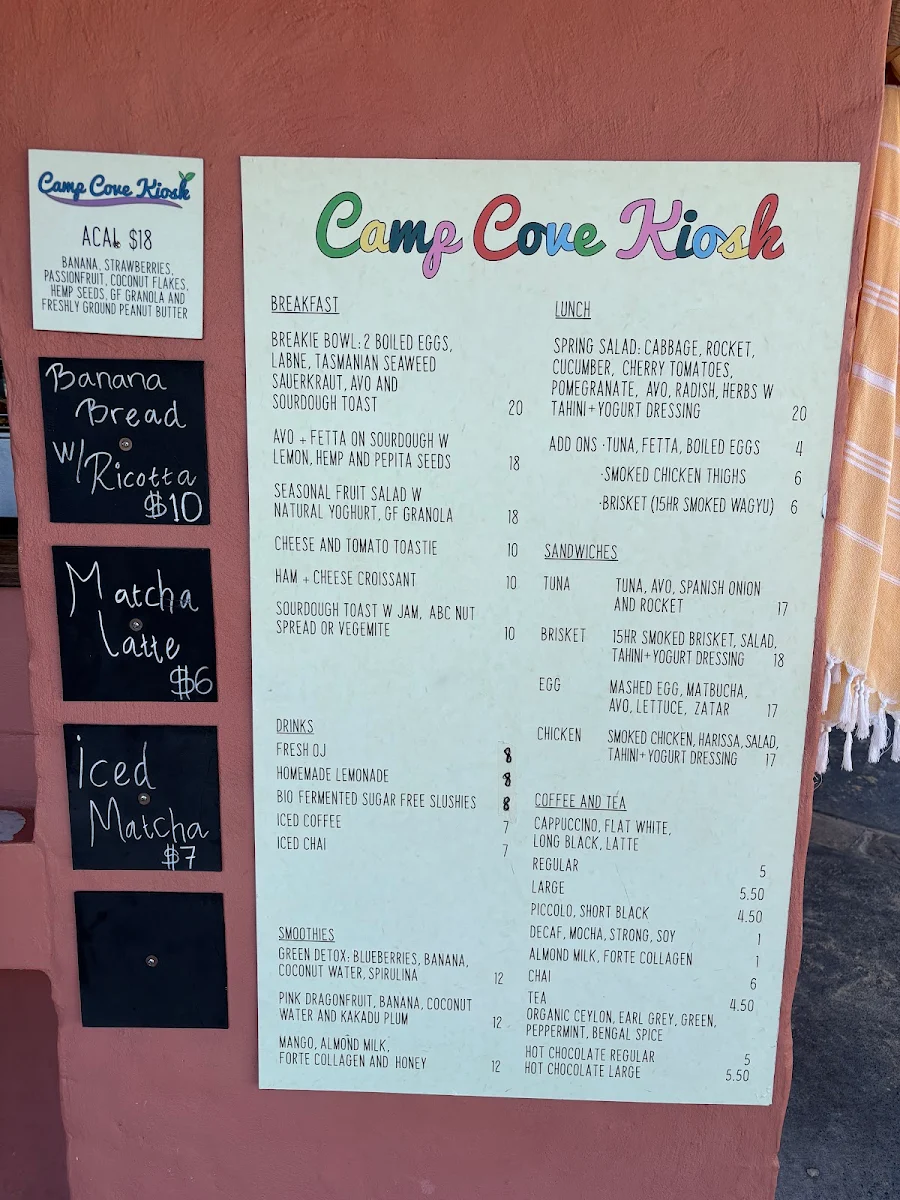 Camp Cove Kiosk
ACAI $18
BANANA, STRAWBERRIES,
PASSIONFRUIT, COCONUT FLAKES,
HEMP SEEDS, GF GRANOLA AND
FRESHLY GROUND PEANUT BUTTER
Banana
Bread
W/Ricotta
$10
Matcha
Latte
$6
iced
Matcha
$7
Camp Cove Kiosk
BREAKFAST
BREAKIE BOWL: 2 BOILED EGGS,
LABNE, TASMANIAN SEAWEED
SAUERKRAUT, AVO AND
SOURDOUGH TOAST 20
AVO + FETTA ON SOURDOUGH W
LEMON, HEMP AND PEPITA SEEDS 18
SEASONAL FRUIT SALAD W
NATURAL YOGHURT, GF GRANOLA 18
CHEESE AND TOMATO TOASTIE 10
HAM + CHEESE CROISSANT 10
SOURDOUGH TOAST W JAM, ABC NUT
SPREAD OR VEGEMITE 10
DRINKS
FRESH OJ 8
HOMEMADE LEMONADE 8
BIO FERMENTED SUGAR FREE SLUSHIES 8
ICED COFFEE 7
ICED CHAI 7
SMOOTHIES
GREEN DETOX: BLUEBERRIES, BANANA,
COCONUT WATER, SPIRULINA 12
PINK DRAGONFRUIT, BANANA, COCONUT
WATER AND KAKADU PLUM 12
MANGO, ALMOND MILK,
FORTE COLLAGEN AND HONEY 12
LUNCH
SPRING SALAD: CABBAGE, ROCKET,
CUCUMBER, CHERRY TOMATOES,
POMEGRANATE, AVO, RADISH, HERBS W
TAHINI+YOGURT DRESSING 20
ADD ONS ·TUNA, FETTA, BOILED EGGS 4
·SMOKED CHICKEN THIGHS 6
·BRISKET (15HR SMOKED WAGYU) 6
SANDWICHES
TUNA TUNA, AVO, SPANISH ONION
AND ROCKET 17
BRISKET 15HR SMOKED BRISKET, SALAD,
TAHINI+YOGURT DRESSING 18
EGG MASHED EGG, MATBUCHA,
AVO, LETTUCE, ZATAR 17
CHICKEN SMOKED CHICKEN, HARISSA, SALAD,
TAHINI+YOGURT DRESSING 17
COFFEE AND TEA
CAPPUCCINO, FLAT WHITE,
LONG BLACK, LATTE
REGULAR 5
LARGE 5.50
PICCOLO, SHORT BLACK 4.50
DECAF, MOCHA, STRONG, SOY 1
ALMOND MILK, FORTE COLLAGEN 1
CHAI 6
TEA 4.50
ORGANIC CEYLON, EARL GREY, GREEN,
PEPPERMINT, BENGAL SPICE
HOT CHOCOLATE REGULAR 5
HOT CHOCOLATE LARGE 5.50